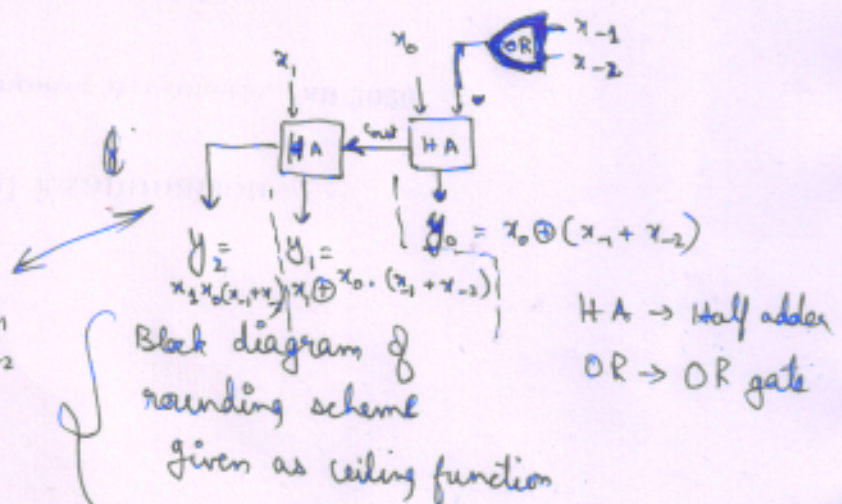 x₋₁
OR
x₋₂
x₀
x₁
HA
Cout
HA
y₀ = x₀ ⊕ (x₋₁ + x₋₂)
y₂ =
y₁ =
x₁x₀(x₋₁+x₋₂)
x₁ ⊕ x₀ · (x₋₁ + x₋₂)
HA → Half adder
OR → OR gate
Block diagram of
rounding scheme
given as ceiling function